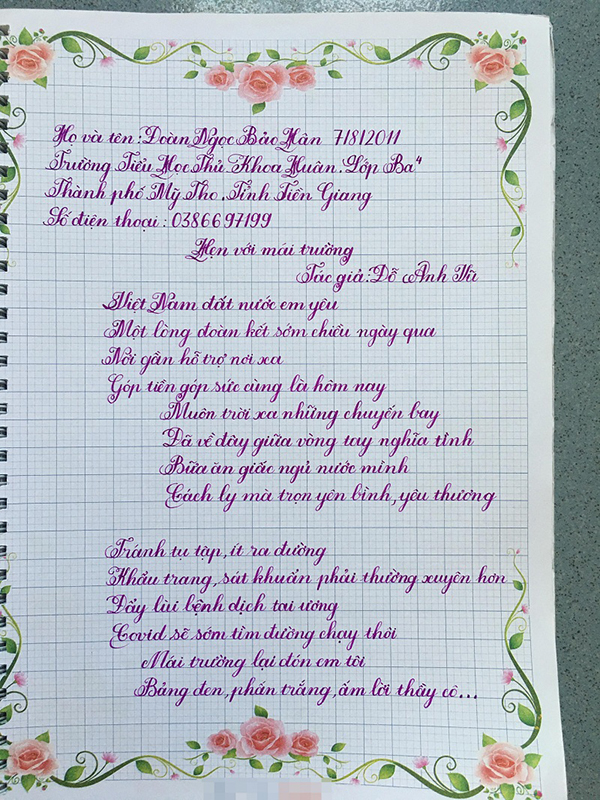 Họ và tên: Đoàn Ngọc Bảo Hân 7/8/2011
Trường Tiểu Học Thủ Khoa Huân. Lớp Ba⁴
Thành phố Mỹ Tho. Tỉnh Tiền Giang
Số điện thoại: 0386697199
Hẹn với mái trường
Tác giả: Đỗ Anh Vũ
Việt Nam đất nước em yêu
Một lòng đoàn kết sớm chiều ngày qua
Nơi gần hỗ trợ nơi xa
Góp tiền góp sức cùng là hôm nay
Muôn trời xa những chuyến bay
Đã về đây giữa vòng tay nghĩa tình
Bữa ăn giấc ngủ nước mình
Cách ly mà trọn yên bình, yêu thương
Tránh tụ tập, ít ra đường
Khẩu trang, sát khuẩn phải thường xuyên hơn
Đẩy lùi bệnh dịch tai ương
Covid sẽ sớm tìm đường chạy thôi
Mái trường lại đón em tôi
Bảng đen, phấn trắng, ấm lời thầy cô...